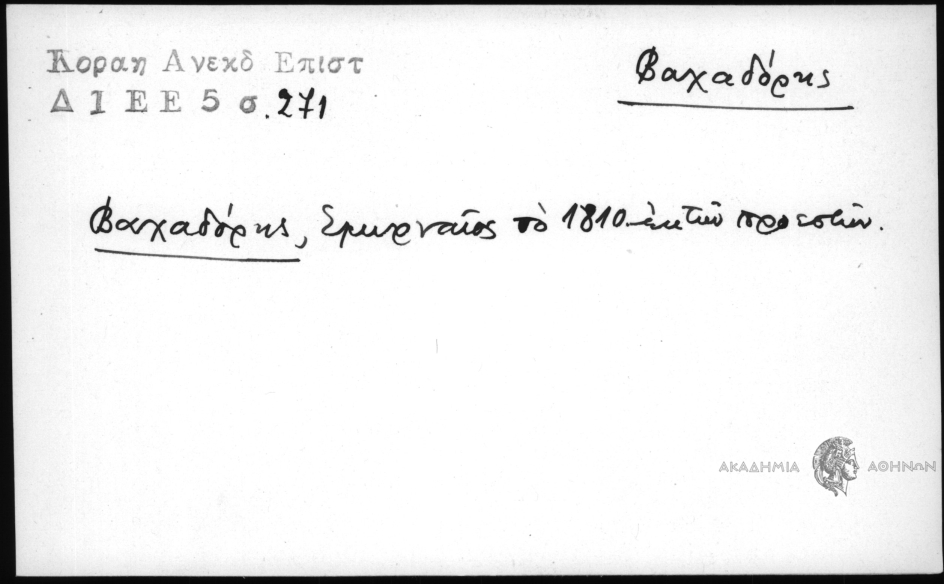 Κοραη Ανεκδ Επιστ
Δ Ι Ε Ε 5 σ. 271
Βαχαδόρης
Βαχαδόρης, Σμυρναῖος τὸ 1810 ἐκ τῶν προεστῶν.
ΑΚΑΔΗΜΙΑ ΑΘΗΝΩΝ